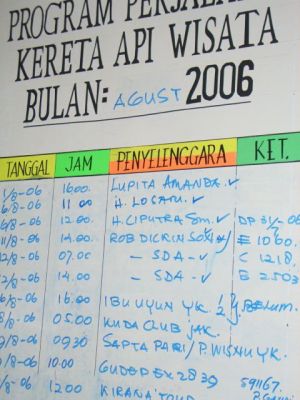 PROGRAM PERJALA
KERETA API WISATA
BULAN: AGUST 2006
TANGGAL JAM PENYELENGGARA KET.
1/8-06 16.00. LUPITA AMANDA. ✓
6/8-06 11.00 H. LOSARI. ✓
8/8-06 12.00. H. CIPUTRA Sm. ✓ DP 31/7-06
11/8-06 14.00. ROB DICKINSON E 1060.
12/8-06 07.00 - SDA - ✓ C 1218.
12/8-06 14.00 - SDA - ✓ B 2503
/8-06 16.00 IBU UYUN YK. Belum.
/8-06 05.00 KUDA CLUB JAK.
9/8-06 09.30 SAPTA PARI / P. WISNU YK.
/8-06 10.00 GUDEP EX 2839
/8-06 12.00 KIRANA TOUR 591167.